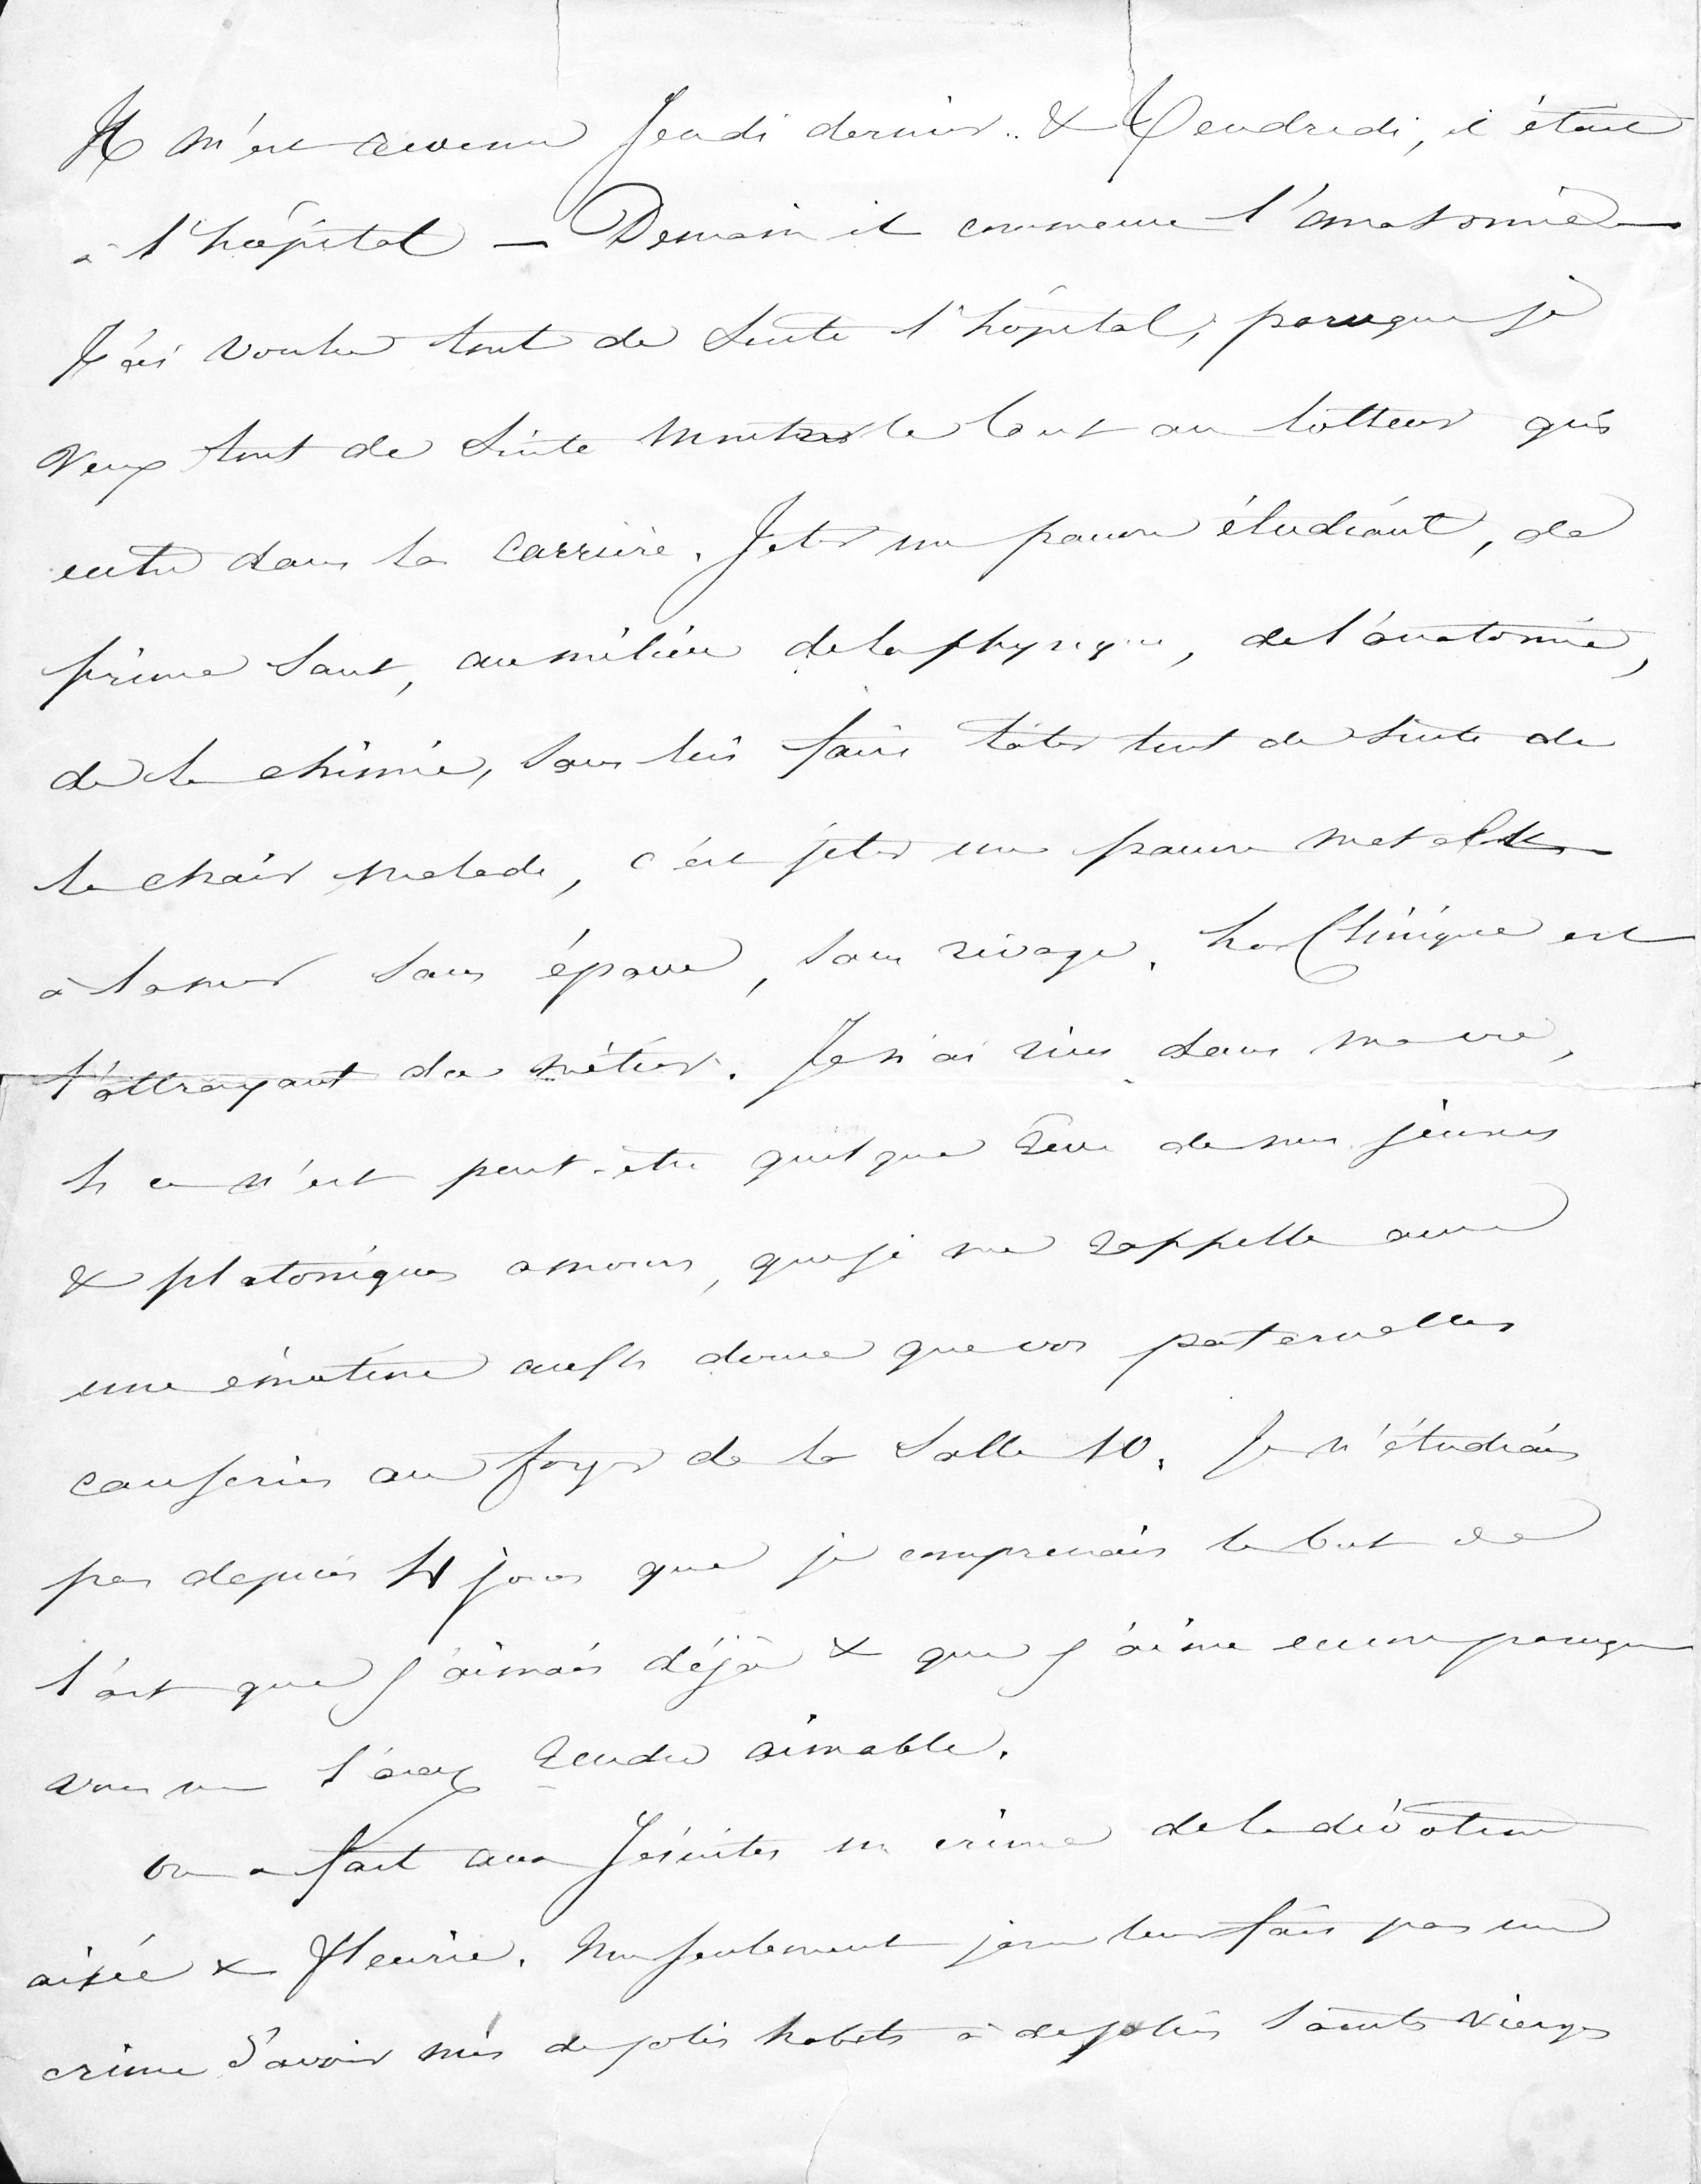 Il m'est revenu Jeudi dernier.. & Vendredi, il était
à l'hôpital — Demain il commence l'anatomie —
J'ai voulu tout de suite l'hôpital, parceque je
veux tout de suite montrer le but au lutteur qui
entre dans la carrière. Jeter un pauvre étudiant, de
prime saut, au milieu de la physique, de l'anatomie,
de la chimie, sans lui faire tâter tout de suite de
la chair malade, c'est jeter un pauvre matelot
à la mer sans épave, sans rivage. La Clinique est
l'attrayant du métier. Je n'ai rien dans ma vie,
si ce n'est peut-être quelque rêve de mes jeunes
& platoniques amours, que je me rappelle avec
une émotion aussi douce que vos paternelles
causeries au foyer de la Salle 10. Je n'étudiais
pas depuis 4 jours que je comprenais le but de
l'art que j'aimais déjà & que j'aime encore parceque
vous me l'avez rendu aimable.
On a fait aux Jésuites un crime de la dévotion
aisée & fleurie. Non seulement je ne leur fais pas un
crime d'avoir mis de jolis habits à de jolies saintes vierges